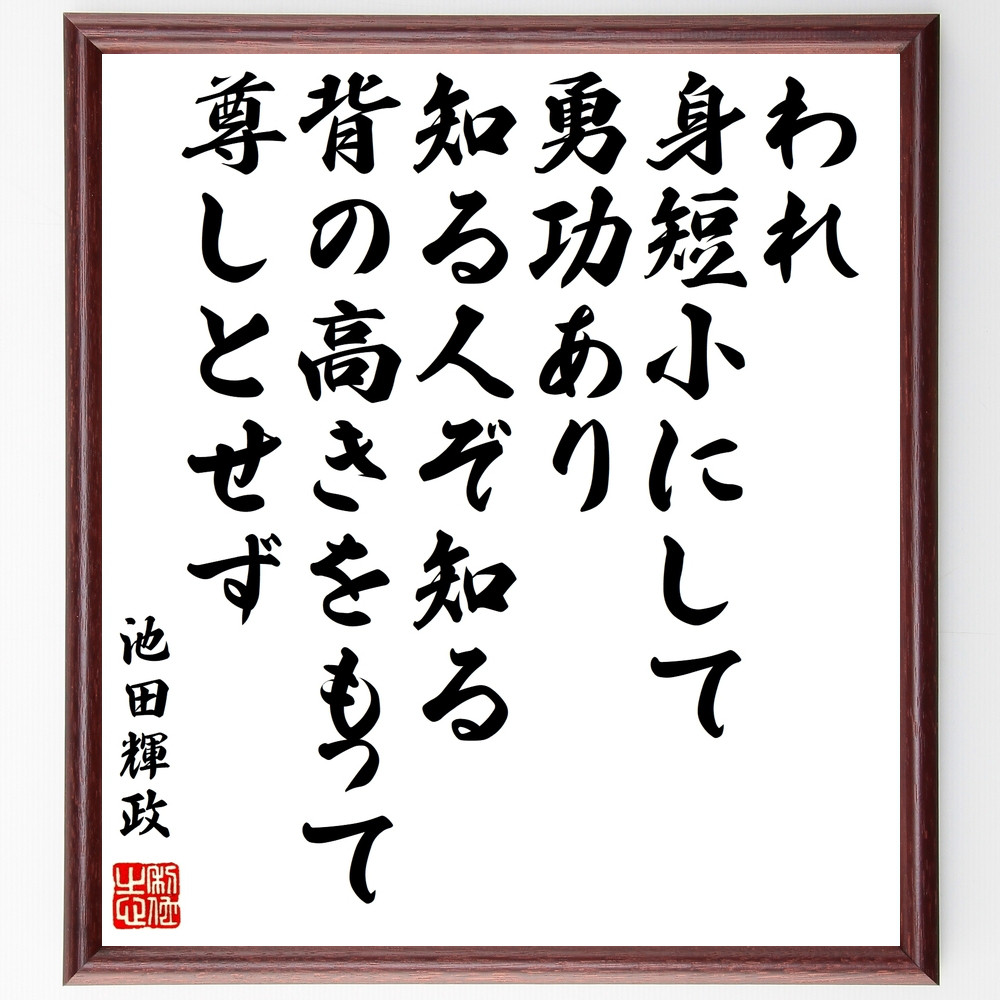 われ
身短小にして
勇功あり
知る人ぞ知る
背の高きをもって
尊しとせず
池田輝政